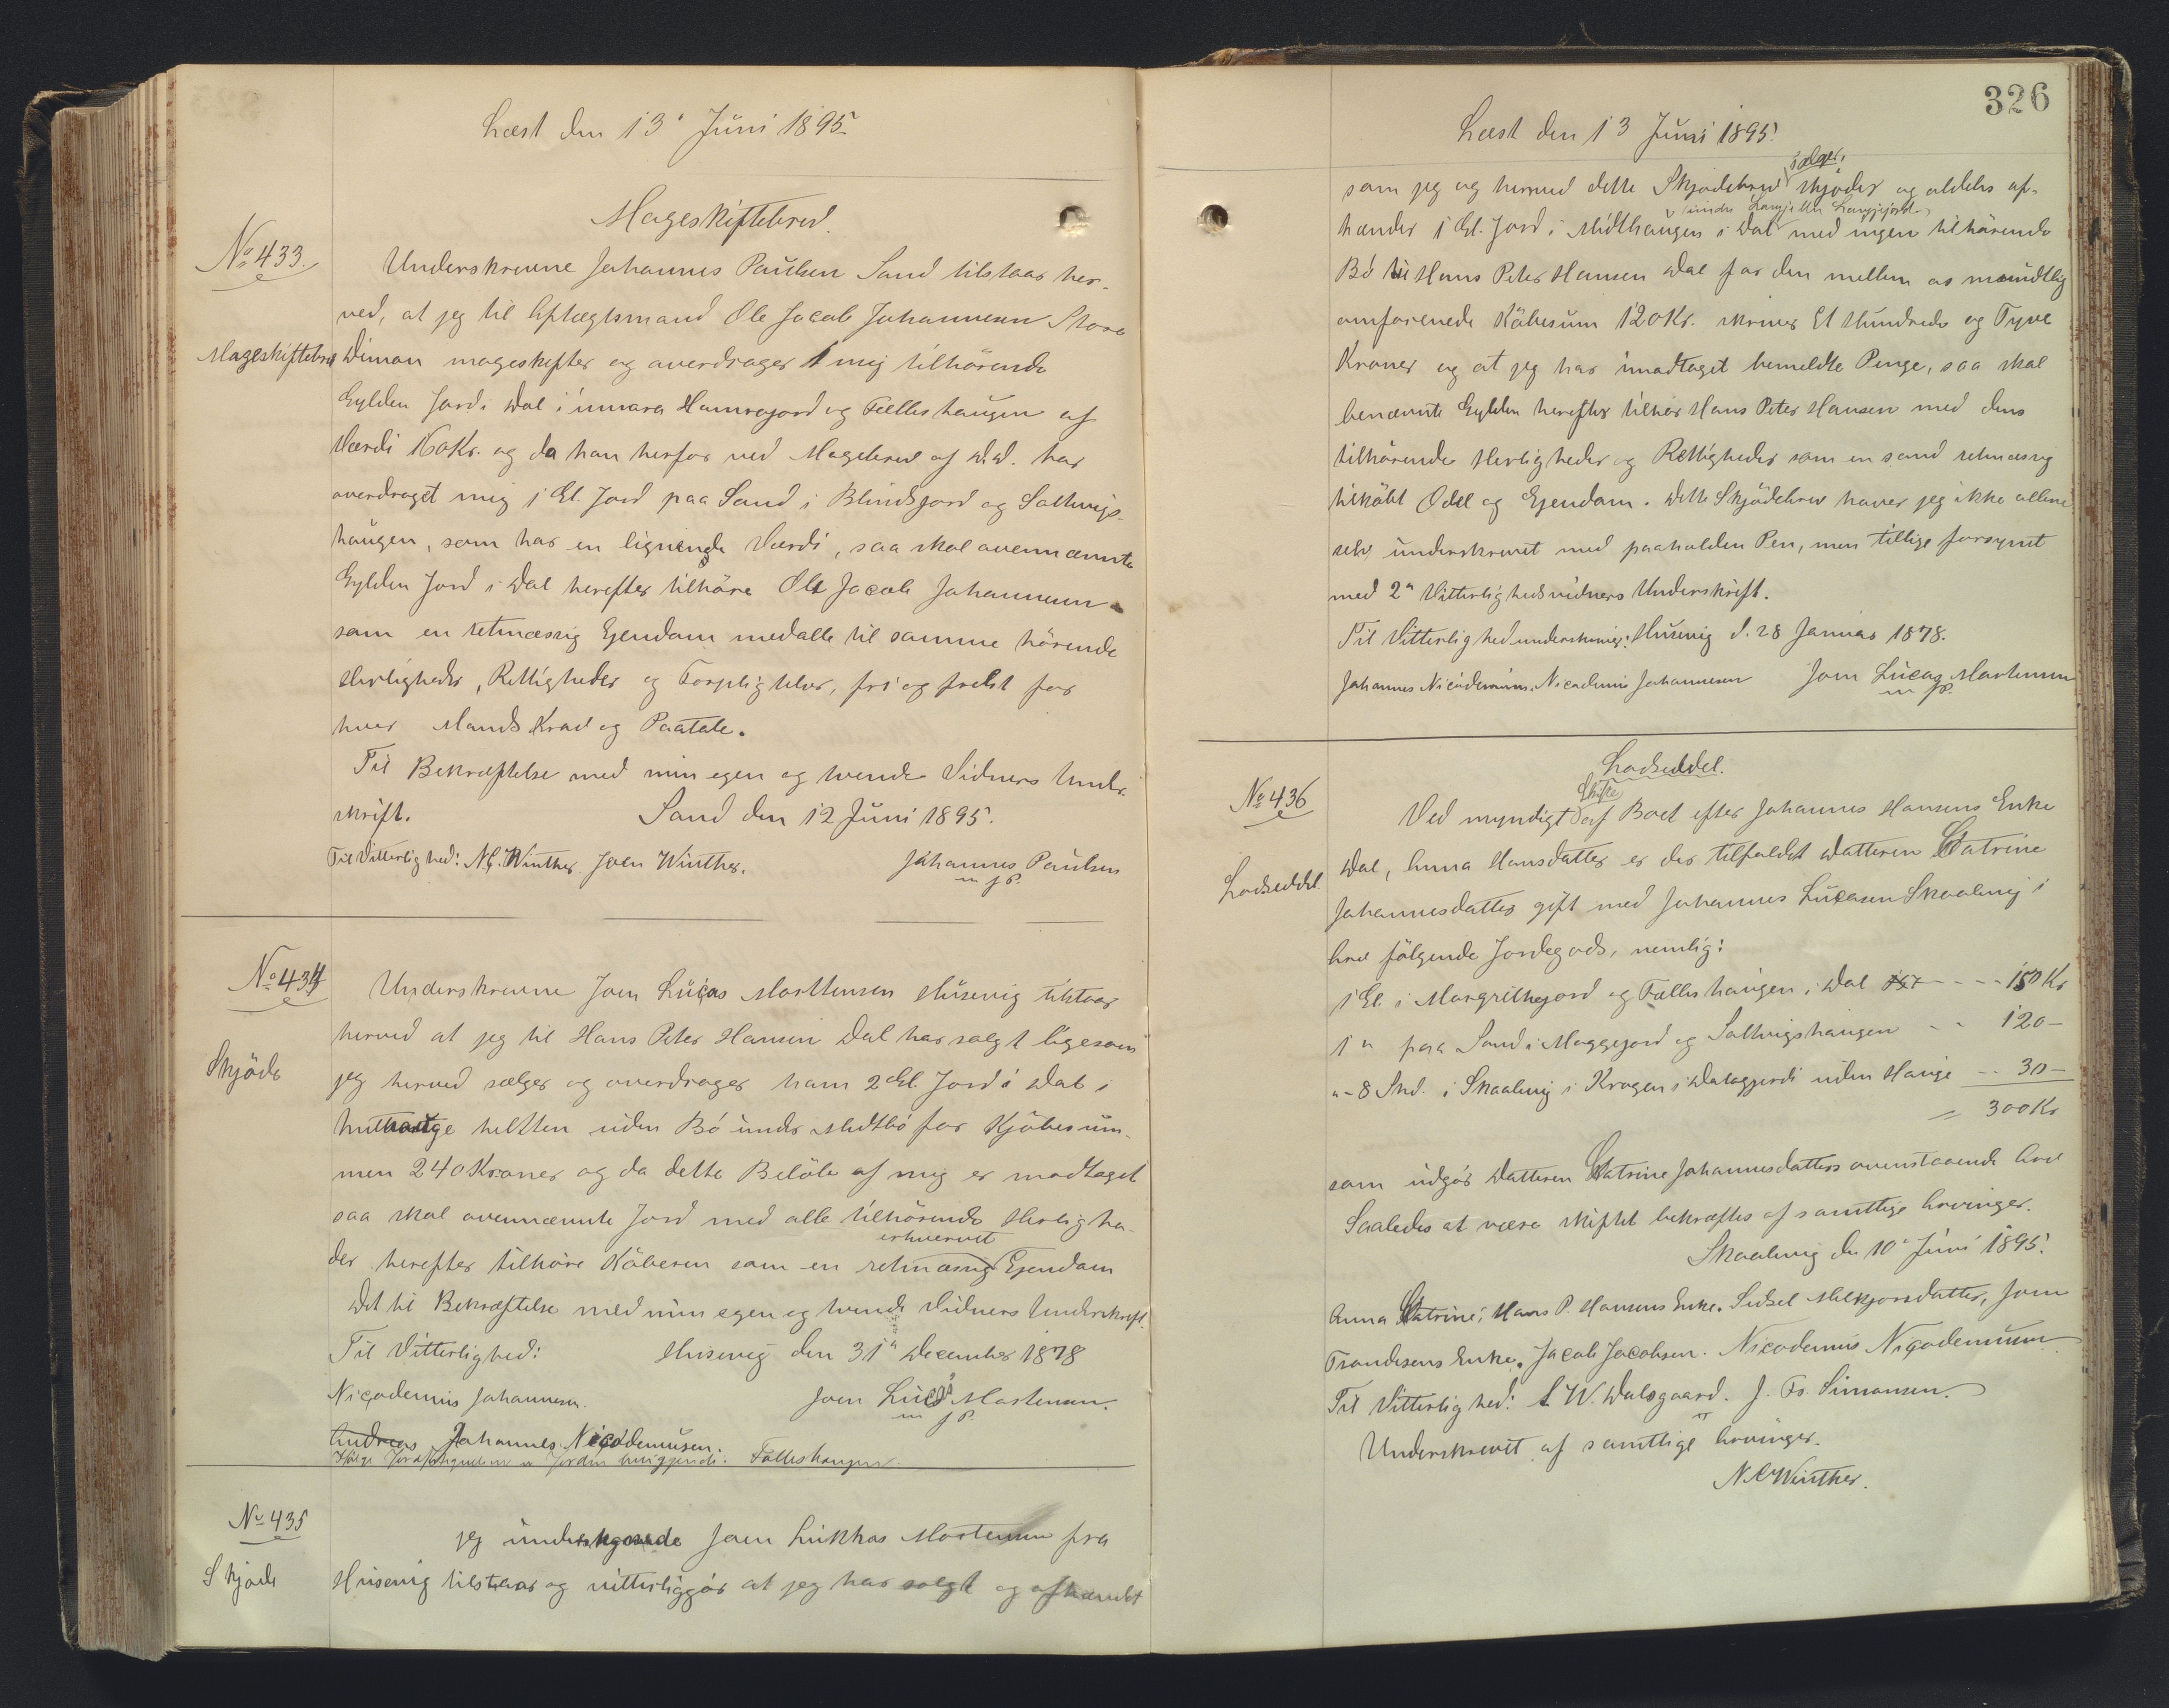 Læst den 13' Juni 1895.
Mageskiftebrev.
No 433.
Mageskiftebrev
Underskrevne Johannes Paulsen Sand tilstaar her-
ved, at jeg til Aftægtsmand Ole Jacob Johannesen Store
Dimon mageskifter og overdrager 1 mig tilhörende
Gylden Jord i Dal i innara Hamragjord og Fælleshaugen af
Værdi 160 Kr. og da han herfor ved Magebrev af D.D. har
overdraget mig 1 Gl. Jord paa Sand i Blindsgjord og Saltvigs-
haugen, som har en lignende Værdi, saa skal ovennævnte
Gylden Jord i Dal herefter tilhöre Ole Jacob Johannesen
som en retmæssig Ejendom med alle til samme hörende
Herligheder, Rettigheder og Forpligtelser, fri og frelst for
hver Mands Krav og Paatale.
Til Bekræftelse med min egen og tvende Vidners Under-
skrift. Sand den 12 Juni 1895.
Til Vitterlighed: N.C. Winther Joen Winther. Johannes Paulsen
m f P.
No 434
Skjöde
Underskrevne Joen Lucas Morttensen Husevig tilstaar
herved at jeg til Hans Peter Hansen Dal har solgt ligesom
jeg herved sælger og overdrager ham 2 Gl. Jord i Dal i
heltten uden Bö under Midtbö for Kjöbesum-
men 240 Kroner og da dette Belöb af mig er modtaget
saa skal ovennævnte Jord med alle tilhörende Herlighe-
der herefter tilhöre Köberen som en retmæssig erhvervet Ejendom
Det til Bekræftelse med min egen og tvende Vidners Underskrift.
Til Vitterlighed: Husevig den 31' December 1878
Nicodemus Johannesen. Joen Lucas Mortensen.
m f P.
Andreas Johannes Nicodemusen.
Fælleshaugen
No 435
Skjöde
jeg underskrevne Joen Lukkas Mortensen fra
Husevig tilstaar og vitterliggör at jeg har solgt og afhændet
326
Læst den 13 Juni 1895.
som jeg og herved dette Skjödebrev sælger, skjöder og aldeles af-
hænder 1 Gl. Jord i Midthaugen i Dal med ingen tilhörende
Bö til Hans Peter Hansen Dal for den mellem os mundtlig
omforenede Köbesum 120 Kr. skriver Et Hundrede og Tyve
Kroner og at jeg har imodtaget bemeldte Penge, saa skal
benævnte Gylden herefter tilhör Hans Peter Hansen med dens
tilhörende Herligheder og Rettigheder som en sand retmæssig
tilköbt Odel og Ejendom. Dette Skjödebrev haver jeg ikke allene
selv underskrevet med paaholden Pen, men tillige forsynet
med 2' Vitterlighedsvidners Underskrift.
Til Vitterlighed underskriver: Husevig d. 28 Januar 1878.
Johannes Nicodemusen. Nicodemus Johannesen Joen Lucas Mortensen
m f P.
Lodseddel.
No 436
Lodseddel
Ved myndigt Skifte af Boet efter Johannes Hansens Enke
Dal, Anna Hansdatter er der tilfaldet Datteren Catrine
Johannesdatter gift med Johannes Lucasen Skaalevig i
Arv fölgende Jordegods, nemlig:
1 Gl. i Margrethegjord og Fælleshaugen i Dal - - - 150 Kr
1 " paa Sand i Maggegjord og Saltvigshaugen - - 120 -
" - 8 Skd. i Skaalevig i Krogen i Dalagjerdi uden Hauge - - 30 -
= 300 Kr
som udgör Datteren Catrine Johannesdatters ovenstaaende Arv
Saaledes at være skiftet bekræftes af samtlige Arvinger.
Skaalevig den 10' Juni 1895.
Anna Catrine, Hans P. Hansens Enke. Sidsel Melkjorsdatter, Joen
Trondesens Enke. Jacob Jacobsen. Nicodemus Nicodemusen
Til Vitterlighed: S W. Dalsgaard. J. Fr. Simonsen.
Underskrevet af samtlige Arvinger.
N C Winther.